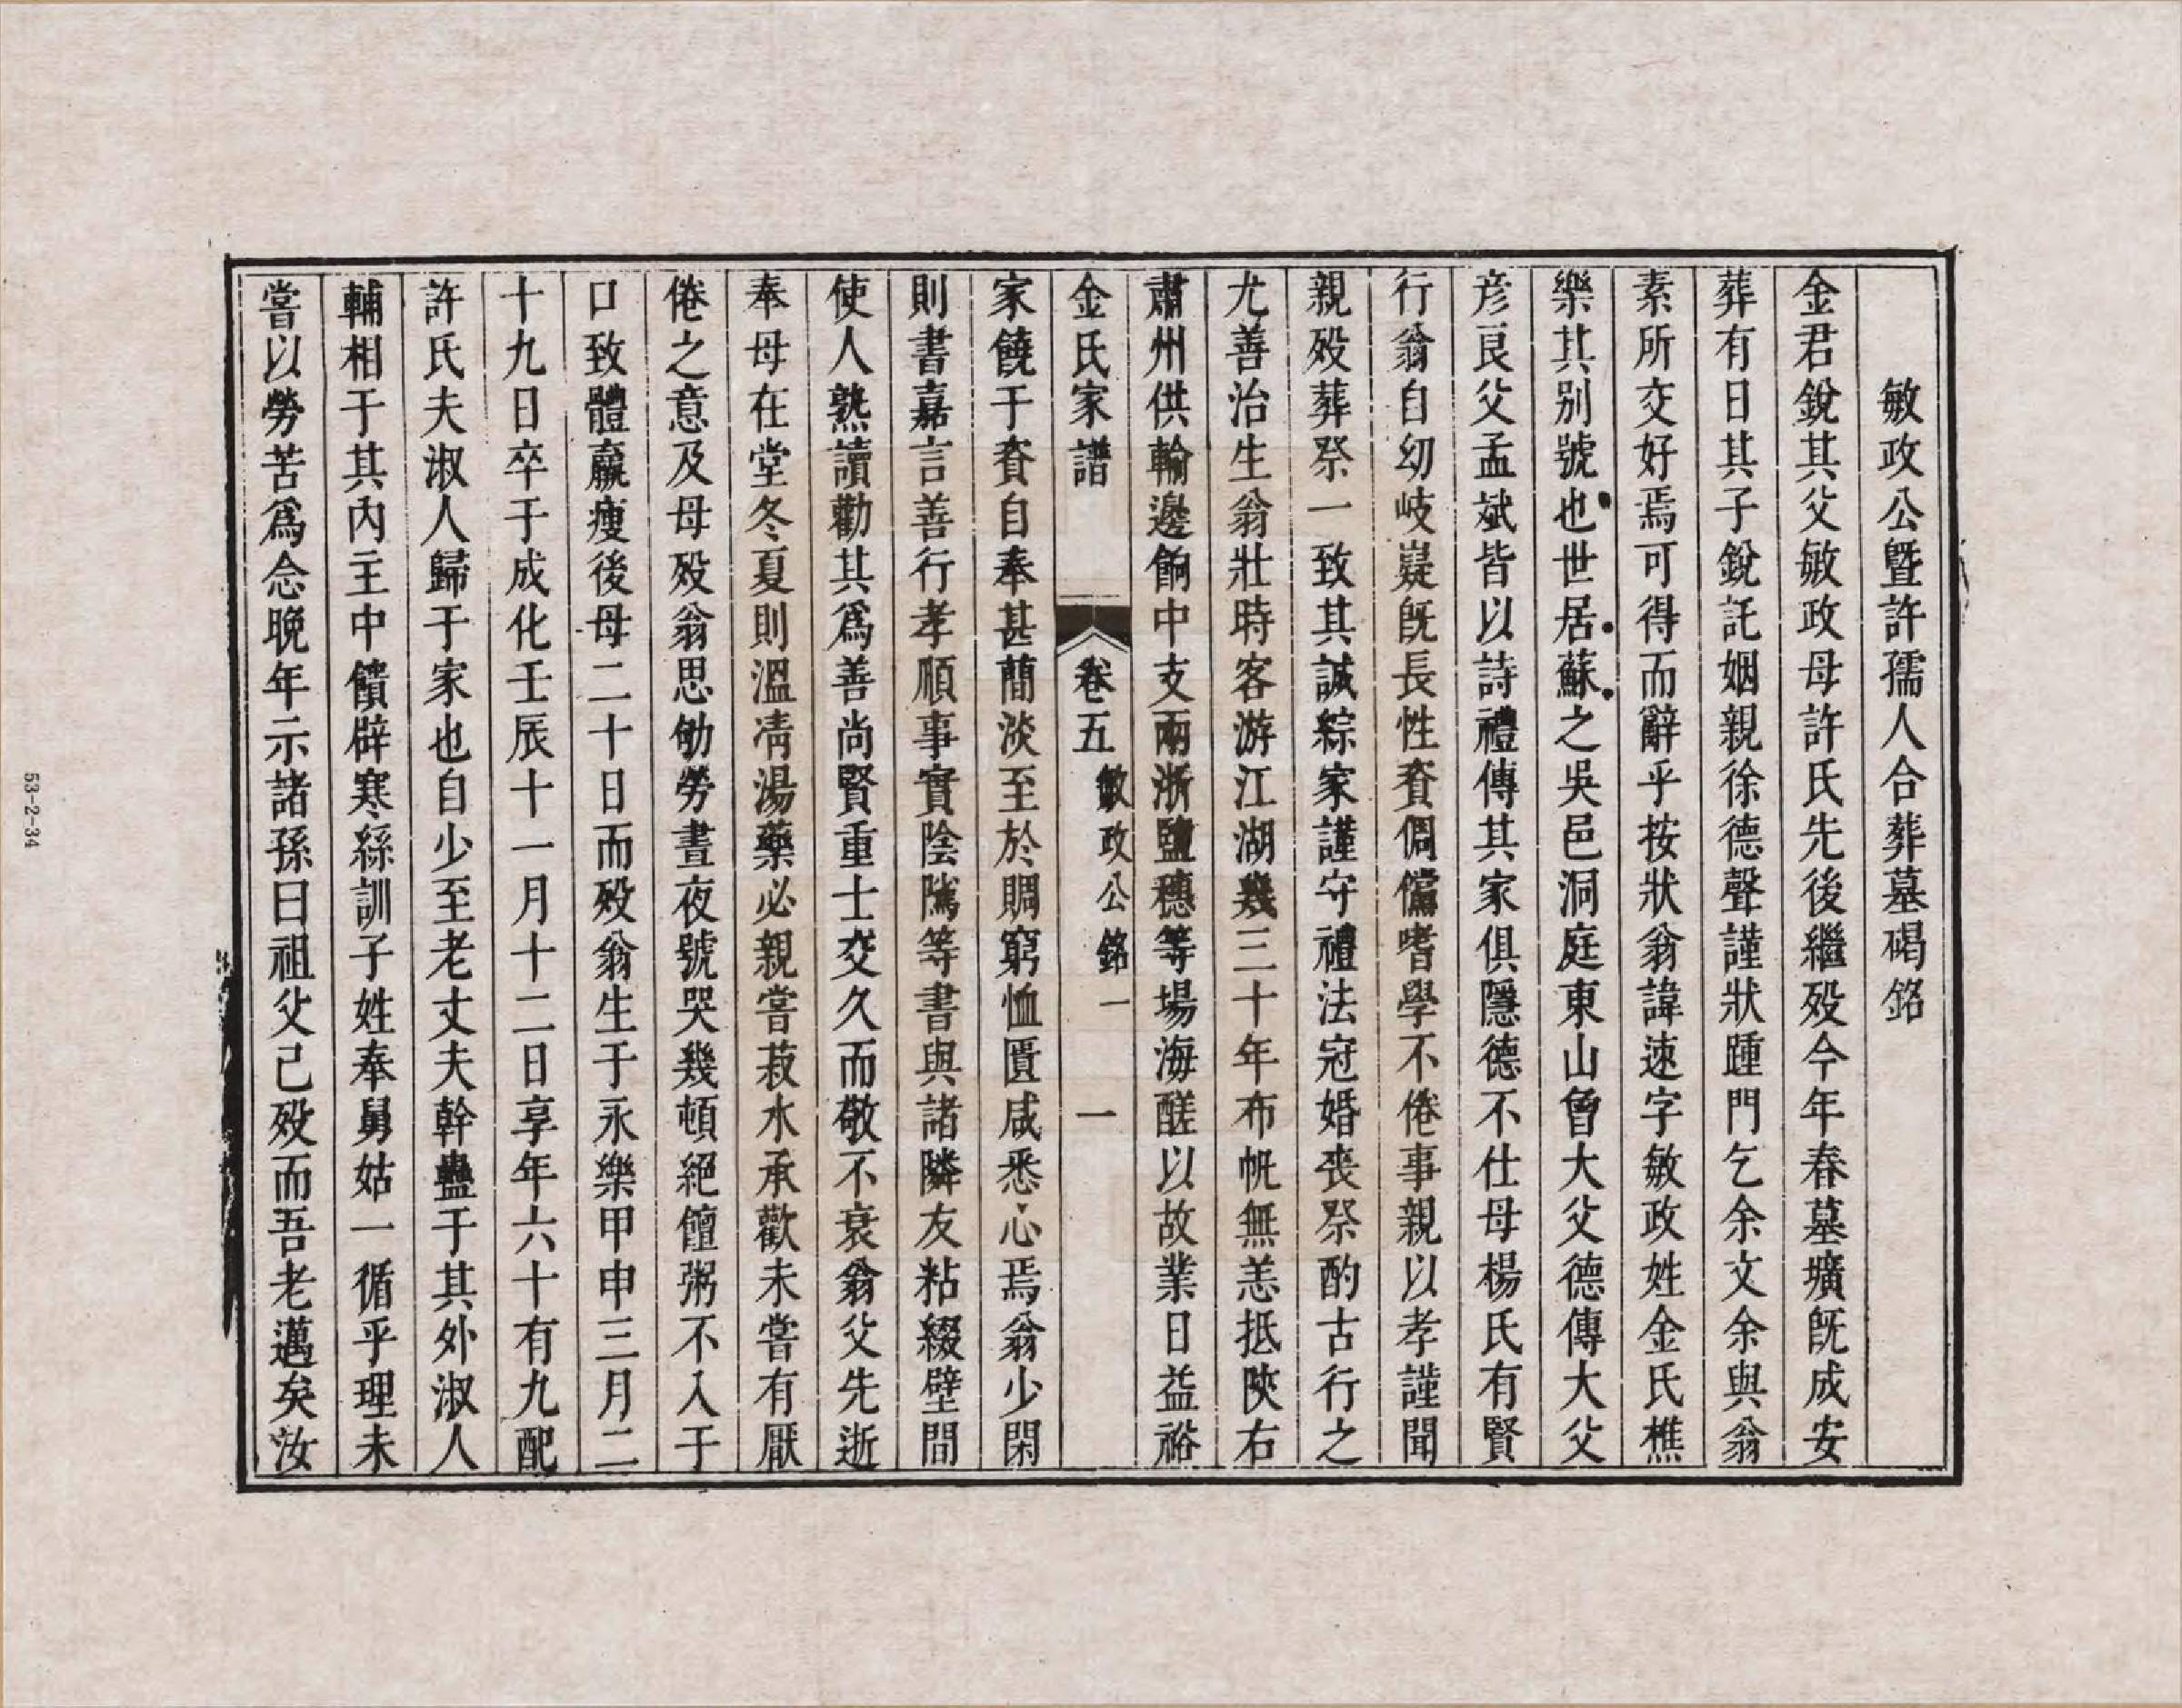 敏政公曁許孺人合葬墓碣銘
金君銳其父敏政母許氏先後繼殁今年春墓壙旣成安
葬有日其子銳託姻親徐德聲謹狀踵門乞余文余與翁
素所交好焉可得而辭乎按狀翁諱速字敏政姓金氏樵
樂其别號也世居蘇之吳邑洞庭東山曾大父德傳大父
彦良父孟斌皆以詩禮傳其家俱隱德不仕母楊氏有賢
行翁自幼岐嶷旣長性資倜儻嗜學不倦事親以孝謹聞
親殁葬祭一致其誠綜家謹守禮法冠婚喪祭酌古行之
尤善治生翁壯時客游江湖幾三十年布帆無恙抵陜右
肅州供輸邊餉中支兩浙鹽穗等塲海醝以故業日益裕
金氏家譜 卷五 敏政公銘一 一
家饒于資自奉甚簡淡至於賙窮恤匱咸悉心焉翁少閑
則書嘉言善行孝順事實陰隲等書與諸隣友粘綴壁間
使人熟讀勸其爲善尚賢重士交久而敬不衰翁父先逝
奉母在堂冬夏則溫凊湯藥必親嘗菽水承歡未嘗有厭
倦之意及母殁翁思劬勞晝夜號哭幾頓絕饘粥不入于
口致體羸瘦後母二十日而殁翁生于永樂甲申三月二
十九日卒于成化壬辰十一月十二日享年六十有九配
許氏夫淑人歸于家也自少至老丈夫幹蠱于其外淑人
輔相于其內主中饋辟寒絲訓子姓奉舅姑一循乎理未
嘗以勞苦爲念晚年示諸孫曰祖父己殁而吾老邁矣汝
53-2-34